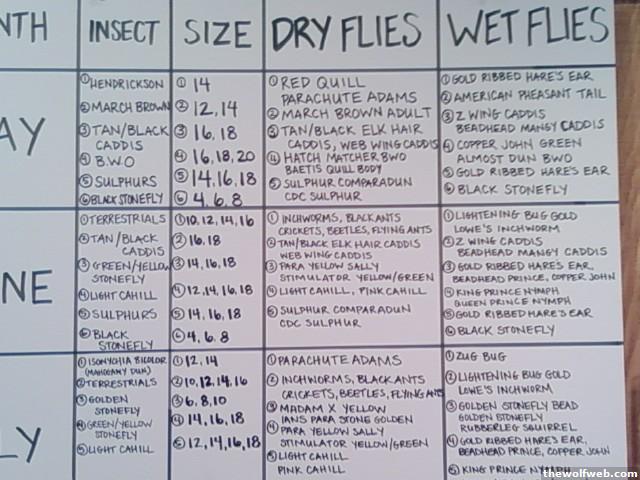 NTH INSECT SIZE DRY FLIES WET FLIES
AY
① HENDRICKSON
② MARCH BROWN
③ TAN/BLACK
CADDIS
④ B.W.O
⑤ SULPHURS
⑥ BLACK STONEFLY
① 14
② 12,14
③ 16,18
④ 16,18,20
⑤ 14,16,18
⑥ 4,6,8
① RED QUILL
PARACHUTE ADAMS
② MARCH BROWN ADULT
③ TAN/BLACK ELK HAIR
CADDIS, WEB WING CADDIS
④ HATCH MATCHER BWO
BAETIS QUILL BODY
⑤ SULPHUR COMPARADUN
CDC SULPHUR
① GOLD RIBBED HARE'S EAR
② AMERICAN PHEASANT TAIL
③ Z WING CADDIS
BEADHEAD MANGY CADDIS
④ COPPER JOHN GREEN
ALMOST DUN BWO
⑤ GOLD RIBBED HARE'S EAR
⑥ BLACK STONEFLY
NE
① TERRESTRIALS
② TAN/BLACK
CADDIS
③ GREEN/YELLOW
STONEFLY
④ LIGHT CAHILL
⑤ SULPHURS
⑥ BLACK
STONEFLY
① 10,12,14,16
② 16,18
③ 14,16,18
④ 12,14,16,18
⑤ 14,16,18
⑥ 4,6,8
① INCHWORMS, BLACK ANTS
CRICKETS, BEETLES, FLYING ANTS
② TAN/BLACK ELK HAIR CADDIS
WEB WING CADDIS
③ PARA YELLOW SALLY
STIMULATOR YELLOW/GREEN
④ LIGHT CAHILL, PINK CAHILL
⑤ SULPHUR COMPARADUN
CDC SULPHUR
① LIGHTENING BUG GOLD
LOWE'S INCHWORM
② Z WING CADDIS
BEADHEAD MANGY CADDIS
③ GOLD RIBBED HARE'S EAR,
BEADHEAD PRINCE, COPPER JOHN
④ KING PRINCE NYMPH
QUEEN PRINCE NYMPH
⑤ GOLD RIBBED HARE'S EAR
⑥ BLACK STONEFLY
LY
① ISONYCHIA BICOLOR
(MAHOGANY DUN)
② TERRESTRIALS
③ GOLDEN
STONEFLY
④ GREEN/YELLOW
STONEFLY
⑤ LIGHT CAHILL
① 12,14
② 10,12,14,16
③ 6,8,10
④ 14,16,18
⑤ 12,14,16,18
① PARACHUTE ADAMS
② INCHWORMS, BLACK ANTS
CRICKETS, BEETLES, FLYING ANTS
③ MADAM X YELLOW
IANS PARA STONE GOLDEN
④ PARA YELLOW SALLY
STIMULATOR YELLOW/GREEN
⑤ LIGHT CAHILL
PINK CAHILL
① ZUG BUG
② LIGHTENING BUG GOLD
LOWE'S INCHWORM
③ GOLDEN STONEFLY BEAD
GOLDEN STONEFLY
RUBBERLEG SQUIRREL
④ GOLD RIBBED HARE'S EAR,
BEADHEAD PRINCE, COPPER JOHN
⑤ KING PRINCE NYMPH
www.thewolfweb.com